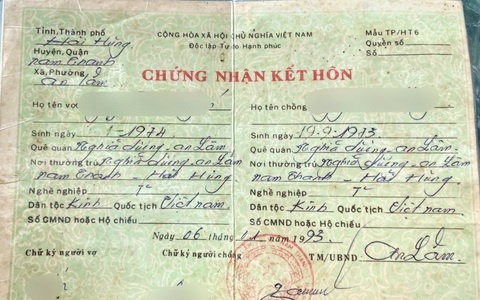 Tỉnh, Thành phố
Hải Hưng
Huyện, Quận
nam Thanh
Xã, Phường
An Lâm
CỘNG HÒA XÃ HỘI CHỦ NGHĨA VIỆT NAM
Độc lập - Tự do Hạnh phúc
Mẫu TP/HT6
Quyển số
Số
CHỨNG NHẬN KẾT HÔN
Họ tên vợ
Họ tên chồng
Sinh ngày 1-1974
Sinh ngày 19-9-1973
Quê quán Nghĩa Dương - An Lâm
Quê quán Nghĩa Dương An Lâm
Nơi thường trú Nghĩa Dương - An Lâm
nam Thanh - Hải Hưng
Nơi thường trú Nghĩa Dương, An Lâm
nam Thanh - Hải Hưng
Nghề nghiệp
Nghề nghiệp
Dân tộc Kinh Quốc tịch Việt nam
Dân tộc Kinh Quốc tịch Việt nam
Số CMND hoặc Hộ chiếu
Số CMND hoặc Hộ chiếu
Ngày 06 tháng 11 năm 1993
Chữ ký người vợ
Chữ ký người chồng
TM/UBND An Lâm